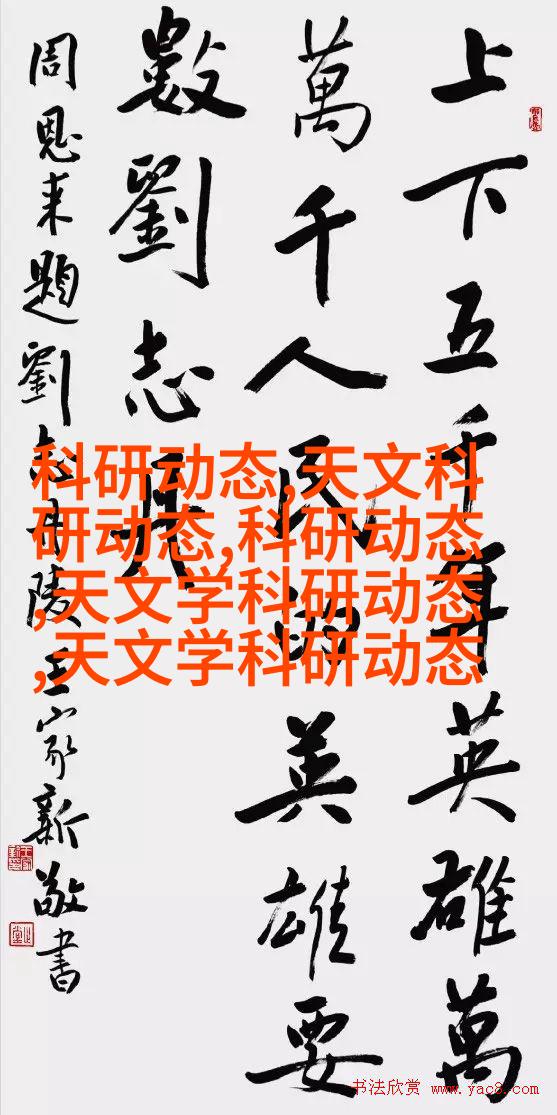 上下五千年英雄萬
萬千人民的英雄要
數劉志丹
周恩来題劉志丹陵王家新敬書
科研动态,天文科
研动态,科研动态
,天文学科研动态
,天文学科研动态
书法欣赏 www.yac8.com